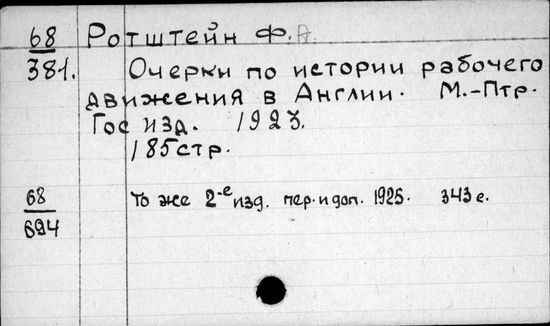 68 Ротштейн Ф.А.
381. Очерки по истории рабочего
движения в Англии. М.-Птр.
Гос изд. 1923.
185стр.
68 То же 2-е изд. пер. и доп. 1925. 343 с.
694